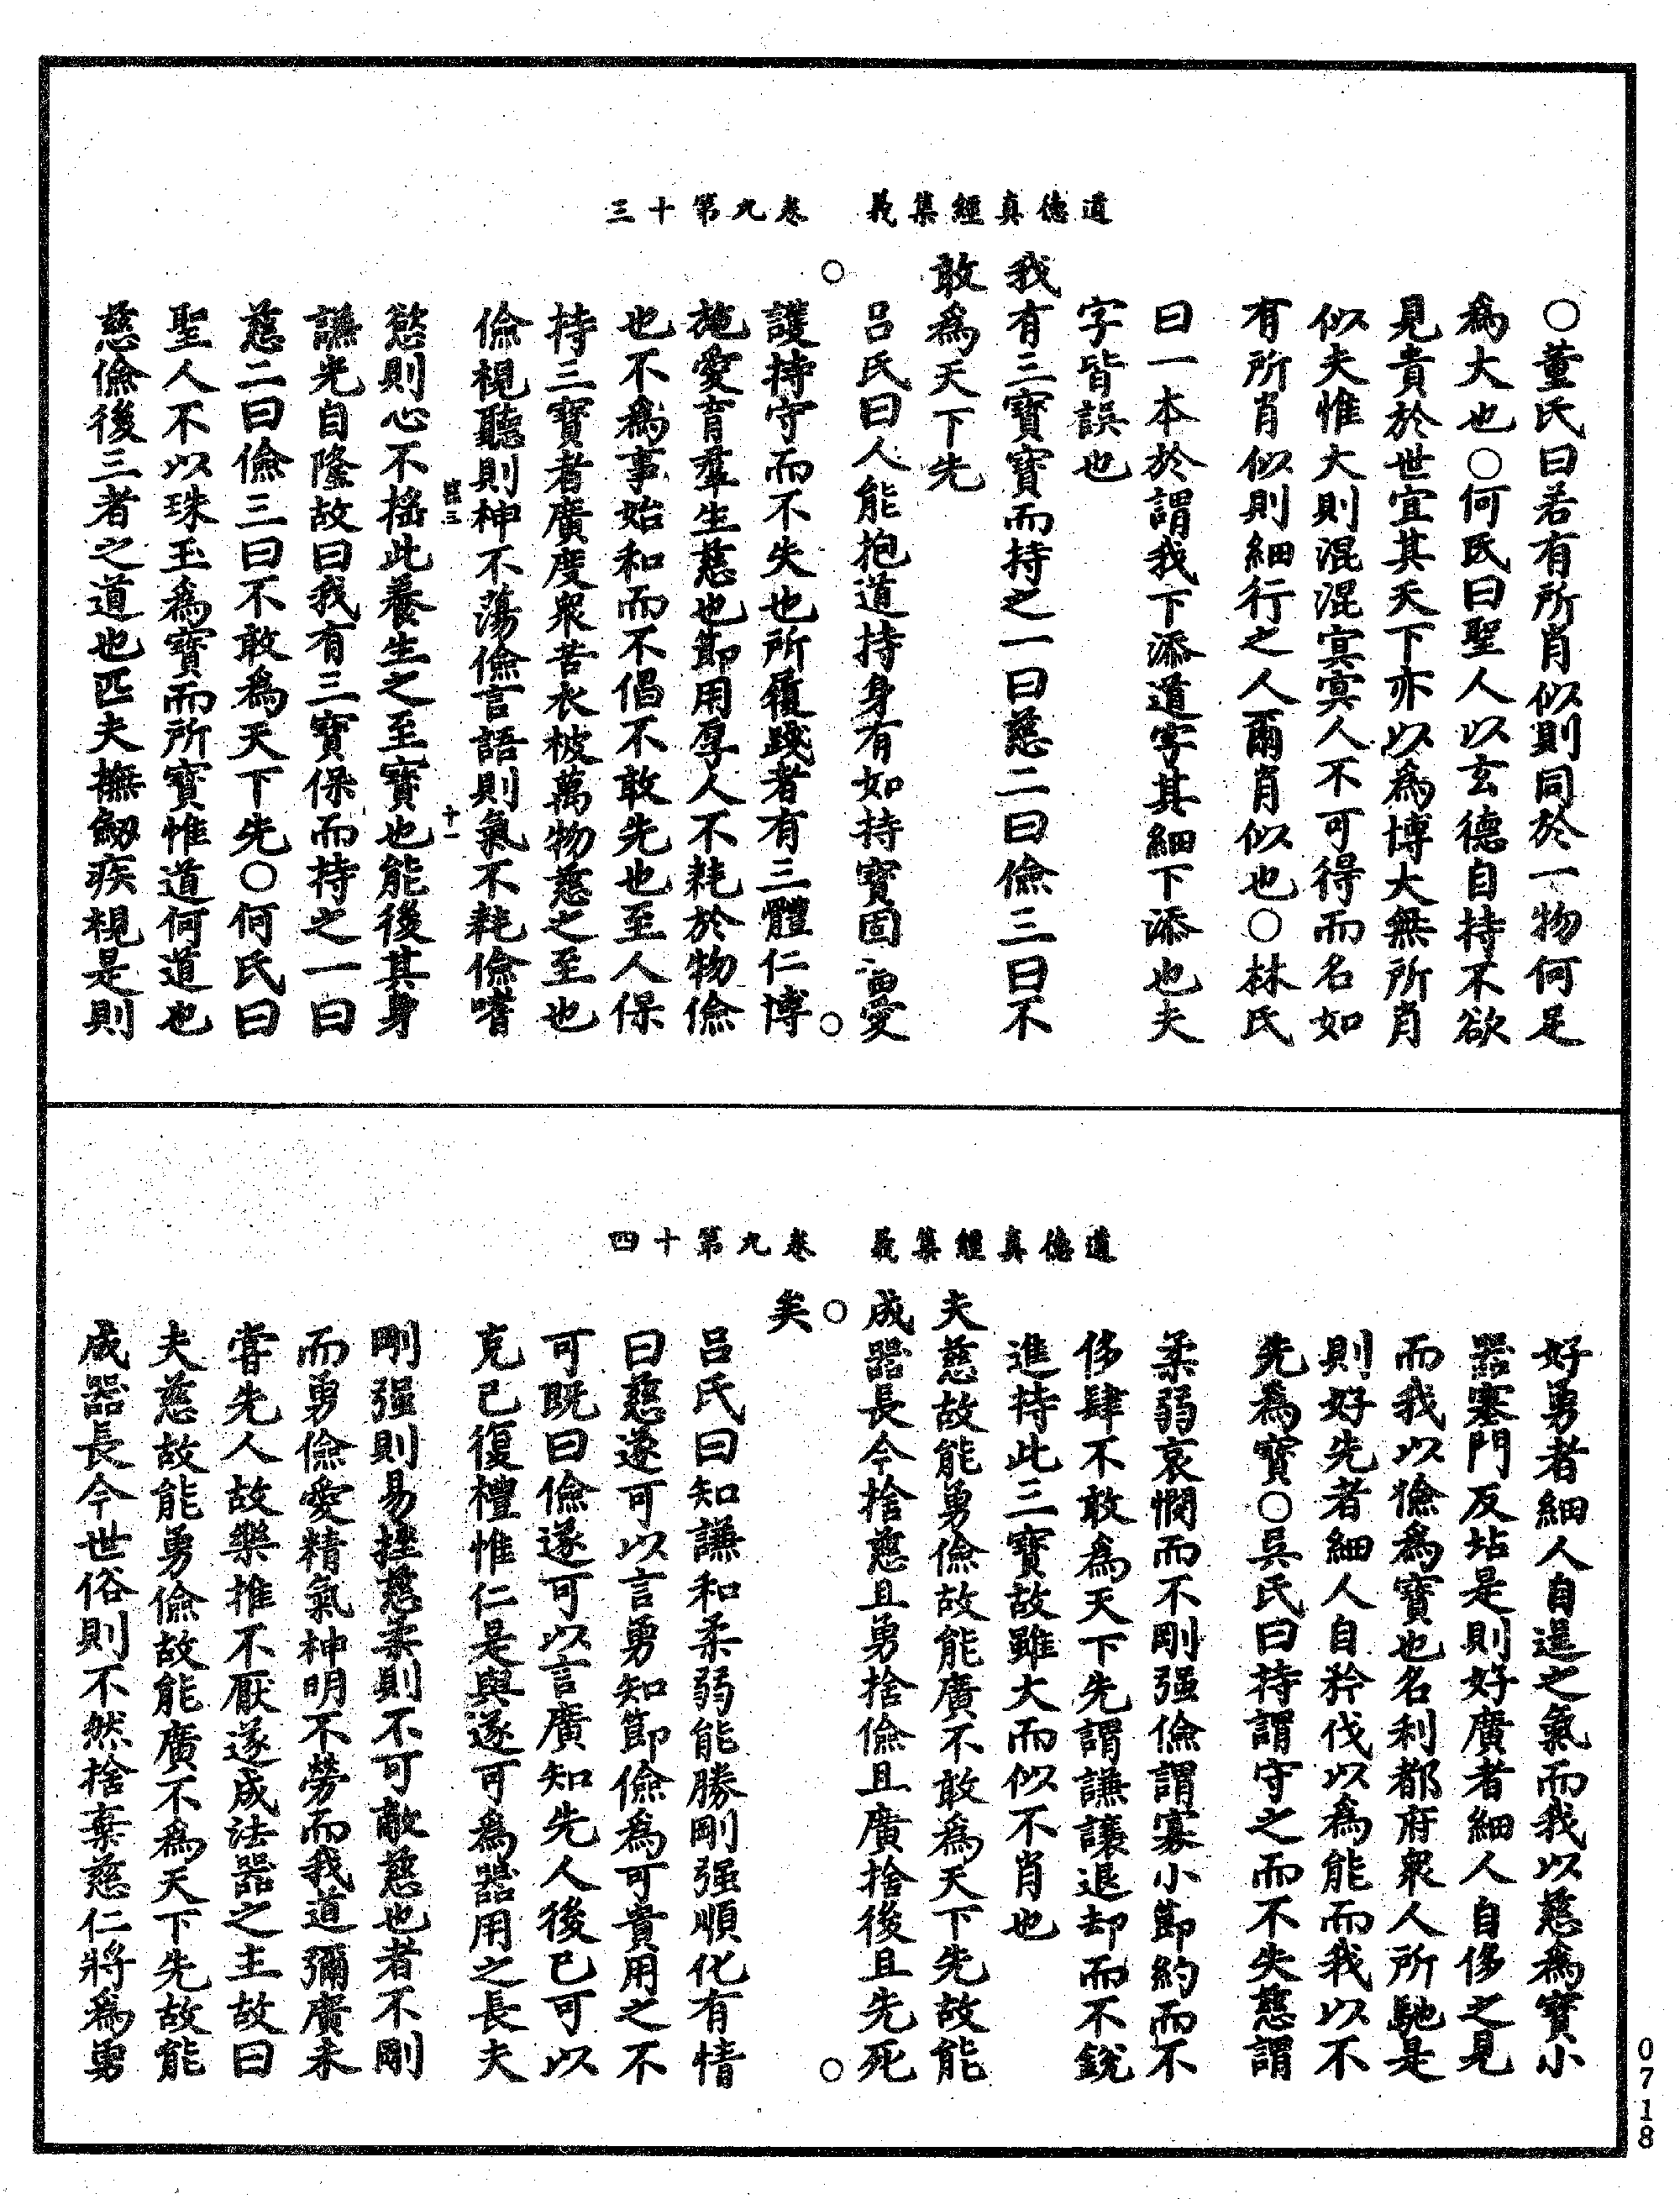 道德真經集義　卷九第十三
○董氏曰若有所肖似則同於一物何足
為大也○何氏曰聖人以玄德自持不欲
見貴於世宜其天下亦以為博大無所肖
似夫惟大則混混冥冥人不可得而名如
有所肖似則細行之人爾肖似也○林氏
曰一本於謂我下添道字其細下添也夫
字皆誤也
我有三寶寶而持之一曰慈二曰儉三曰不
敢為天下先
呂氏曰人能抱道持身有如持寶固愛
護持守而不失也所履踐者有三體仁博
施愛育羣生慈也節用厚人不耗於物儉
也不為事始和而不倡不敢先也至人保
持三寶者廣度衆苦衣被萬物慈之至也
儉視聽則神不蕩儉言語則氣不耗儉嗜
慾則心不搖此養生之至寶也能後其身
謙光自隆故曰我有三寶保而持之一曰
慈二曰儉三曰不敢為天下先○何氏曰
聖人不以珠玉為寶而所寶惟道何道也
慈儉後三者之道也匹夫撫劒疾視是則
十一
道德真經集義　卷九第十四
好勇者細人自逞之氣而我以慈為寶小
器塞門反坫是則好廣者細人自侈之見
而我以儉為寶也名利都府衆人所馳是
則好先者細人自矜伐以為能而我以不
先為寶○吳氏曰持謂守之而不失慈謂
柔弱哀憫而不剛强儉謂寡小節約而不
侈肆不敢為天下先謂謙讓退却而不銳
進持此三寶故雖大而似不肖也
夫慈故能勇儉故能廣不敢為天下先故能
成器長今捨慈且勇捨儉且廣捨後且先死
矣
呂氏曰知謙和柔弱能勝剛强順化有情
曰慈遂可以言勇知節儉為可貴用之不
可既曰儉遂可以言廣知先人後己可以
克己復禮惟仁是與遂可為器用之長夫
剛强則易挫慈柔則不可敵慈也者不剛
而勇儉愛精氣神明不勞而我道彌廣未
嘗先人故樂推不厭遂成法器之主故曰
夫慈故能勇儉故能廣不為天下先故能
成器長今世俗則不然捨棄慈仁將為勇
0718